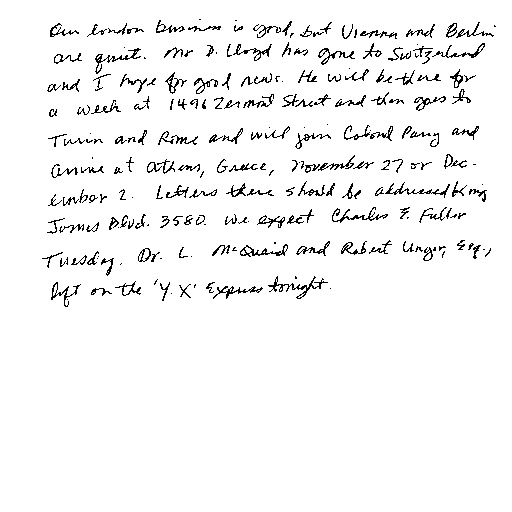 Our london business is good, but Vienna and Berlin
are quiet. Mr D. Lloyd has gone to Switzerland
and I hope for good news. He will be there for
a week at 1496 Zermott Street and then goes to
Turin and Rome and will join Colonel Parry and
arrive at Athens, Greece, November 27 or Dec-
ember 2. Letters there should be addressed King
James Blvd. 3580. We expect Charles E. Fuller
Tuesday. Dr. L. McQuaid and Robert Unger, Esq.,
left on the 'Y.X' Express tonight.